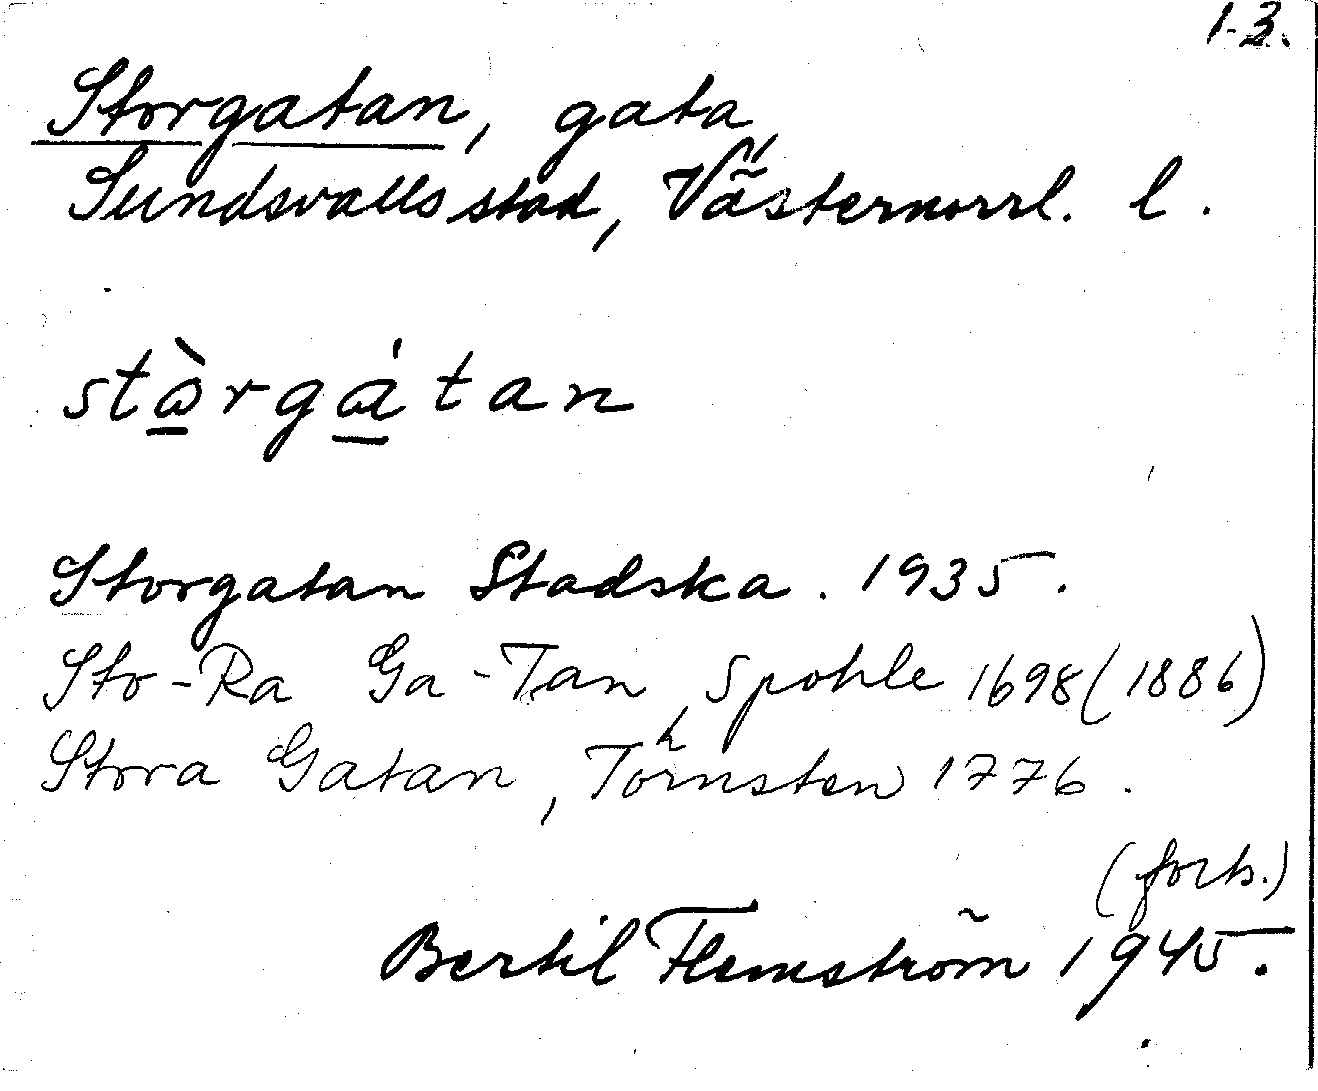 1-3.
Storgatan, gata,
Sundsvalls stad, Västernorrl. l.
stὼ̲rgά̲tan
Storgatan Stadska. 1935.
Sto-Ra Ga-Tan, Spohle 1698 (1886)
Stora Gatan, Törnsten 1776.
(forts.)
Bertil Flemström 1945.